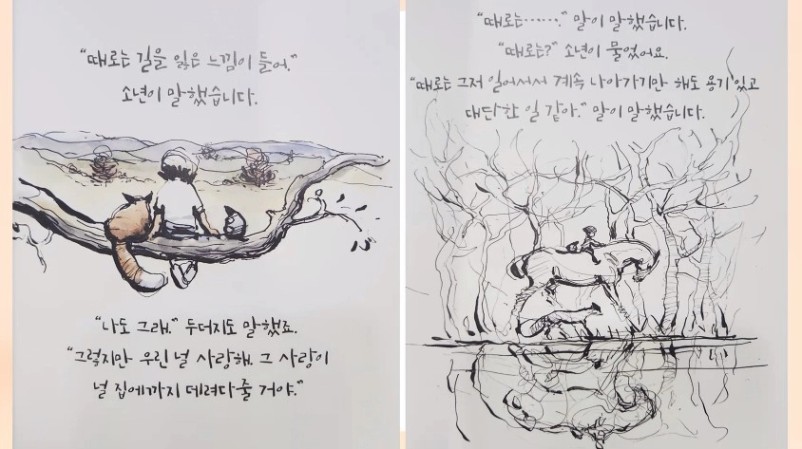 "때로는 길을 잃은 느낌이 들어."
소년이 말했습니다.
"나도 그래." 두더지도 말했죠.
"그렇지만 우린 널 사랑해. 그 사랑이
널 집에까지 데려다줄 거야."
"때로는……." 말이 말했습니다.
"때로는?" 소년이 물었어요.
"때로는 그저 일어서서 계속 나아가기만 해도 용기 있고
대단한 일 같아." 말이 말했습니다.